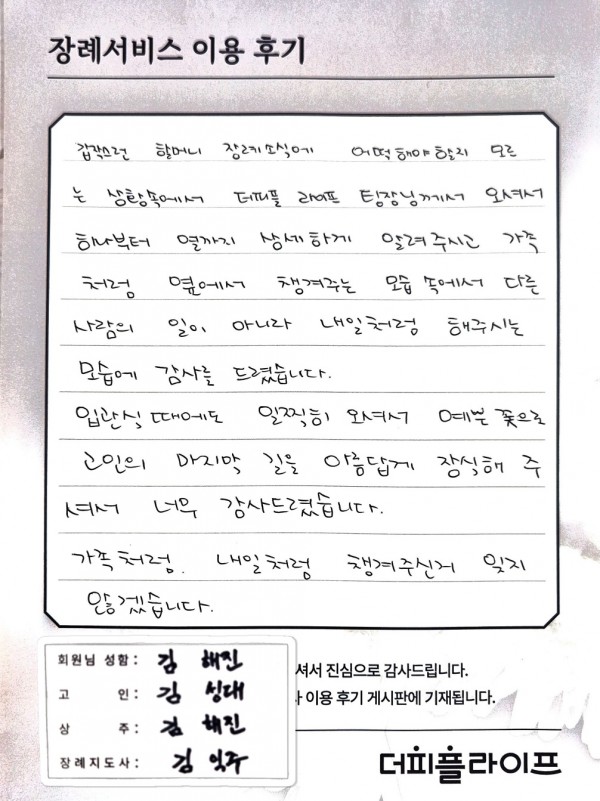 장례서비스 이용 후기
갑작스런 할머니 장례소식에 어떡해야할지 모르
는 상황속에서 더피플 라이프 팀장님께서 오셔서
하나부터 열까지 상세하게 알려주시고 가족
처럼 옆에서 챙겨주는 모습 속에서 다른
사람의 일이 아니라 내일처럼 해주시는
모습에 감사를 드렸습니다.
입관식 때에도 일찍히 오셔서 예쁜 꽃으로
고인의 마지막 길을 아름답게 장식해 주
셔서 너무 감사드렸습니다.
가족처럼. 내일처럼 챙겨주신거 잊지
않겠습니다.
회원님 성함 : 김 해진
고 인 : 김 성대
상 주 : 김 해진
장례지도사 : 김 익주
셔서 진심으로 감사드립니다.
이용 후기 게시판에 기재됩니다.
더피플라이프